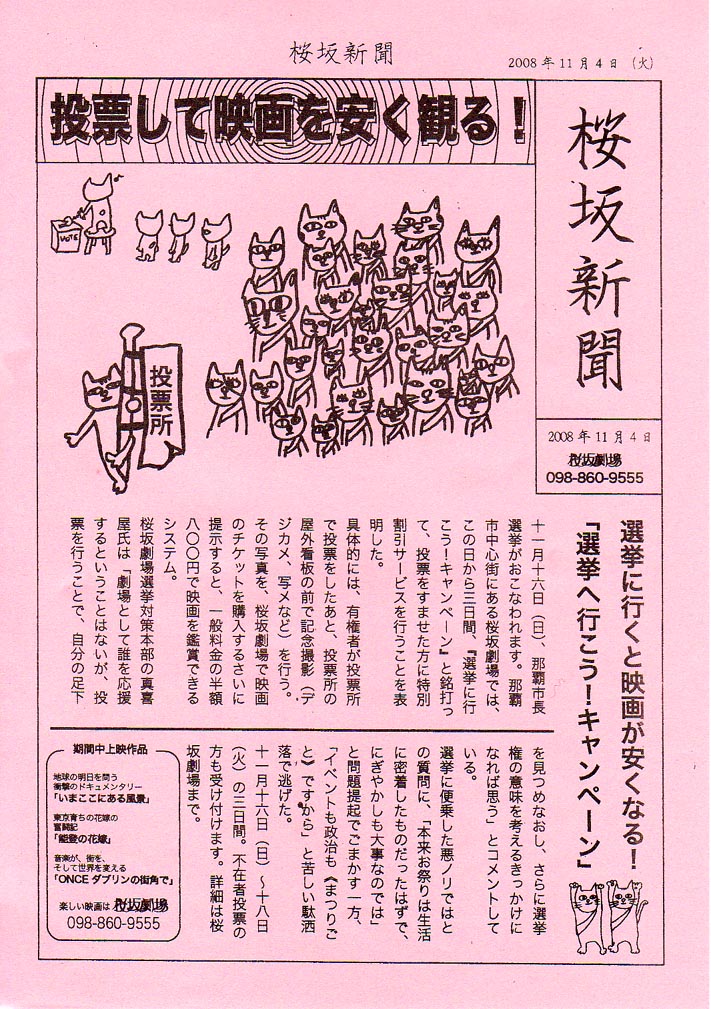 桜坂新聞
2008年11月4日 (火)
投票して映画を安く観る!
桜坂新聞
2008年11月4日
桜坂劇場
098-860-9555
VOTE
投票所
選挙に行くと映画が安くなる!
『選挙へ行こう!キャンペーン』
十一月十六日(日)、那覇市長
選挙がおこなわれます。那覇
市中心街にある桜坂劇場では、
この日から三日間、『選挙に行
こう!キャンペーン』と銘打っ
て、投票をすませた方に特別
割引サービスを行うことを表
明した。
具体的には、有権者が投票所
で投票をしたあと、投票所の
屋外看板の前で記念撮影(デ
ジカメ、写メなど)を行う。
その写真を、桜坂劇場で映画
のチケットを購入するさいに
提示すると、一般料金の半額
八〇〇円で映画を鑑賞できる
システム。
桜坂劇場選挙対策本部の真喜
屋氏は「劇場として誰を応援
するということはないが、投
票を行うことで、自分の足下
を見つめなおし、さらに選挙
権の意味を考えるきっかけに
なれば思う」とコメントして
いる。
選挙に便乗した悪ノリではと
の質問に、「本来お祭りは生活
に密着したものだったはずで、
にぎやかしも大事なのでは」
と問題提起でごまかす一方、
「イベントも政治も《まつりご
と》ですから」と苦しい駄洒
落で逃げた。
十一月十六日(日)〜十八日
(火)の三日間。不在者投票の
方も受け付けます。詳細は桜
坂劇場まで。
期間中上映作品
地球の明日を問う
衝撃のドキュメンタリー
「いまここにある風景」
東京育ちの花嫁の
奮闘記
「能登の花嫁」
音楽が、街を、
そして世界を変える
「ONCE ダブリンの街角で」
楽しい映画は 桜坂劇場
098-860-9555